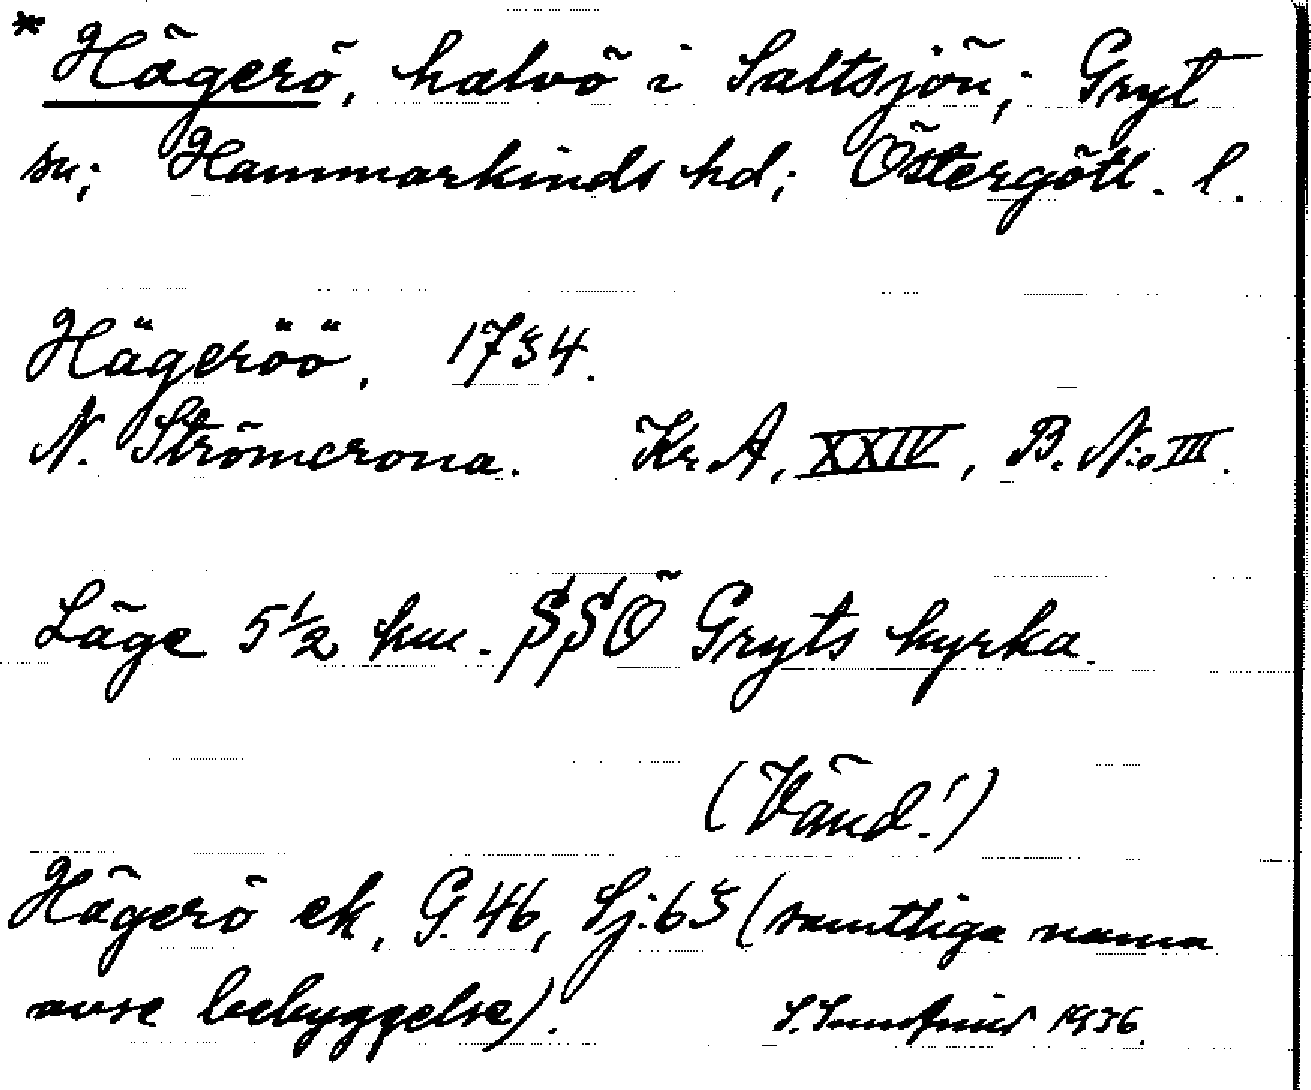 * Hägerö, halvö i Saltsjön; Gryt
sn; Hammarkinds hd; Östergötl. l.
Hägeröö, 1734.
N. Strömcrona. Kr. A, XXIV, B. N:o III.
Läge 5 1/2 km. SSÖ Gryts kyrka.
(Vänd!)
Hägerö ek, G. 46, Sj. 63 (samtliga namn
avse bebyggelse).
S. 1936.